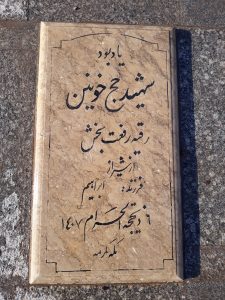 یادبود
شهید حج خونین
رقیه رفعت بخش
از شیراز
فرزند: ابراهیم
۶ ذیحجه الحرام ۱۴۰۷
مکه مکرمه